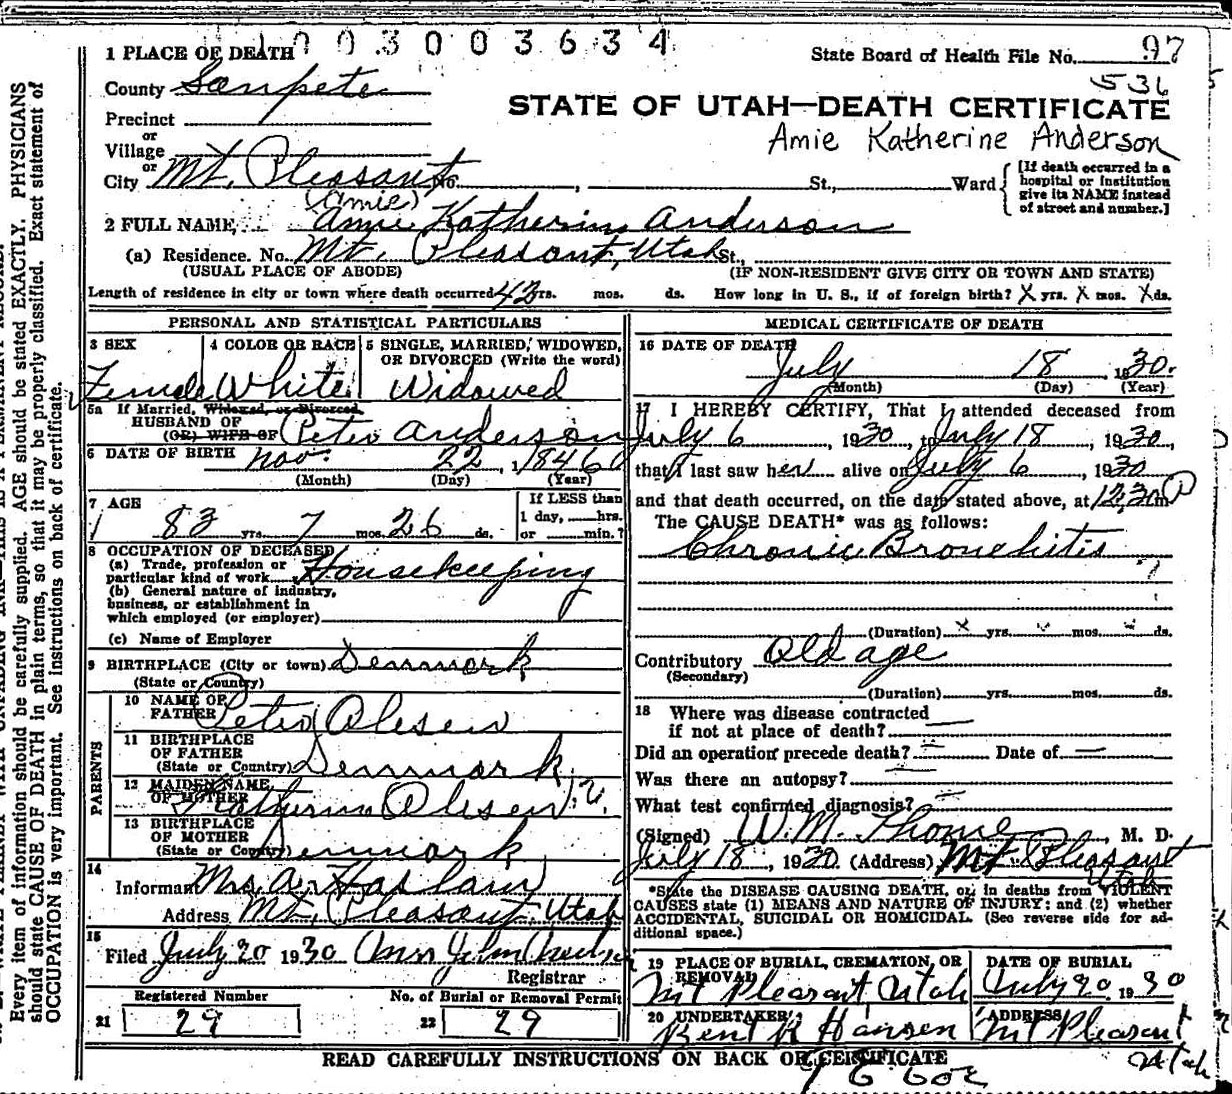 1 PLACE OF DEATH 003003634
State Board of Health File No. 97
County Sanpete
536
STATE OF UTAH—DEATH CERTIFICATE
Precinct
or
Village
Amie Katherine Anderson
or
City Mt. Pleasant No. , St., Ward
[If death occurred in a hospital or institution give its NAME instead of street and number.]
(Amie)
2 FULL NAME, Amie Katherine Anderson
(a) Residence. No. Mt. Pleasant, Utah St.,
(USUAL PLACE OF ABODE) (IF NON-RESIDENT GIVE CITY OR TOWN AND STATE)
Length of residence in city or town where death occurred 42 yrs. mos. ds. How long in U. S., if of foreign birth? X yrs. X mos. X ds.
PERSONAL AND STATISTICAL PARTICULARS
3 SEX 4 COLOR OR RACE 5 SINGLE, MARRIED, WIDOWED, OR DIVORCED (Write the word)
Female White Widowed
5a If Married, Widowed, or Divorced
HUSBAND OF
(OR) WIFE OF Peter Anderson
6 DATE OF BIRTH Nov. 22, 1846
(Month) (Day) (Year)
7 AGE
83 yrs. 7 mos. 26 ds.
If LESS than
1 day, hrs.
or min.?
8 OCCUPATION OF DECEASED
(a) Trade, profession or
particular kind of work Housekeeping
(b) General nature of industry,
business, or establishment in
which employed (or employer)
(c) Name of Employer
9 BIRTHPLACE (City or town) Denmark
(State or Country)
PARENTS
10 NAME OF
FATHER Peter Olesen
11 BIRTHPLACE
OF FATHER
(State or Country) Denmark
12 MAIDEN NAME
OF MOTHER Katherine Olesen
13 BIRTHPLACE
OF MOTHER
(State or Country) Denmark
14
Informant Mrs.
Address Mt. Pleasant, Utah
15
Filed July 20 1930
Registrar
Registered Number No. of Burial or Removal Permit
21 29 22 29
MEDICAL CERTIFICATE OF DEATH
16 DATE OF DEATH
July 18 1930.
(Month) (Day) (Year)
17 I HEREBY CERTIFY, That I attended deceased from
July 6, 1930, to July 18, 1930,
that I last saw her alive on July 6, 1930
and that death occurred, on the date stated above, at 12.30 m P
The CAUSE DEATH* was as follows:
Chronic Bronchitis
(Duration) yrs. mos. ds.
Contributory Old age
(Secondary)
(Duration) yrs. mos. ds.
18 Where was disease contracted
if not at place of death?
Did an operation precede death? Date of
Was there an autopsy?
What test confirmed diagnosis?
(Signed) W. M. , M. D.
July 18, 1930 (Address) Mt. Pleasant
Utah
*State the DISEASE CAUSING DEATH, or, in deaths from VIOLENT
CAUSES state (1) MEANS AND NATURE OF INJURY; and (2) whether
ACCIDENTAL, SUICIDAL OR HOMICIDAL. (See reverse side for ad-
ditional space.)
19 PLACE OF BURIAL, CREMATION, OR REMOVAL DATE OF BURIAL
Mt Pleasant Utah July 20 1930
20 UNDERTAKER ADDRESS
Bent R Hansen Mt Pleasant
Utah
READ CAREFULLY INSTRUCTIONS ON BACK OF CERTIFICATE
Every item of information should be carefully supplied. AGE should be stated EXACTLY. PHYSICIANS
should state CAUSE OF DEATH in plain terms, so that it may be properly classified. Exact statement of
OCCUPATION is very important. See instructions on back of certificate.